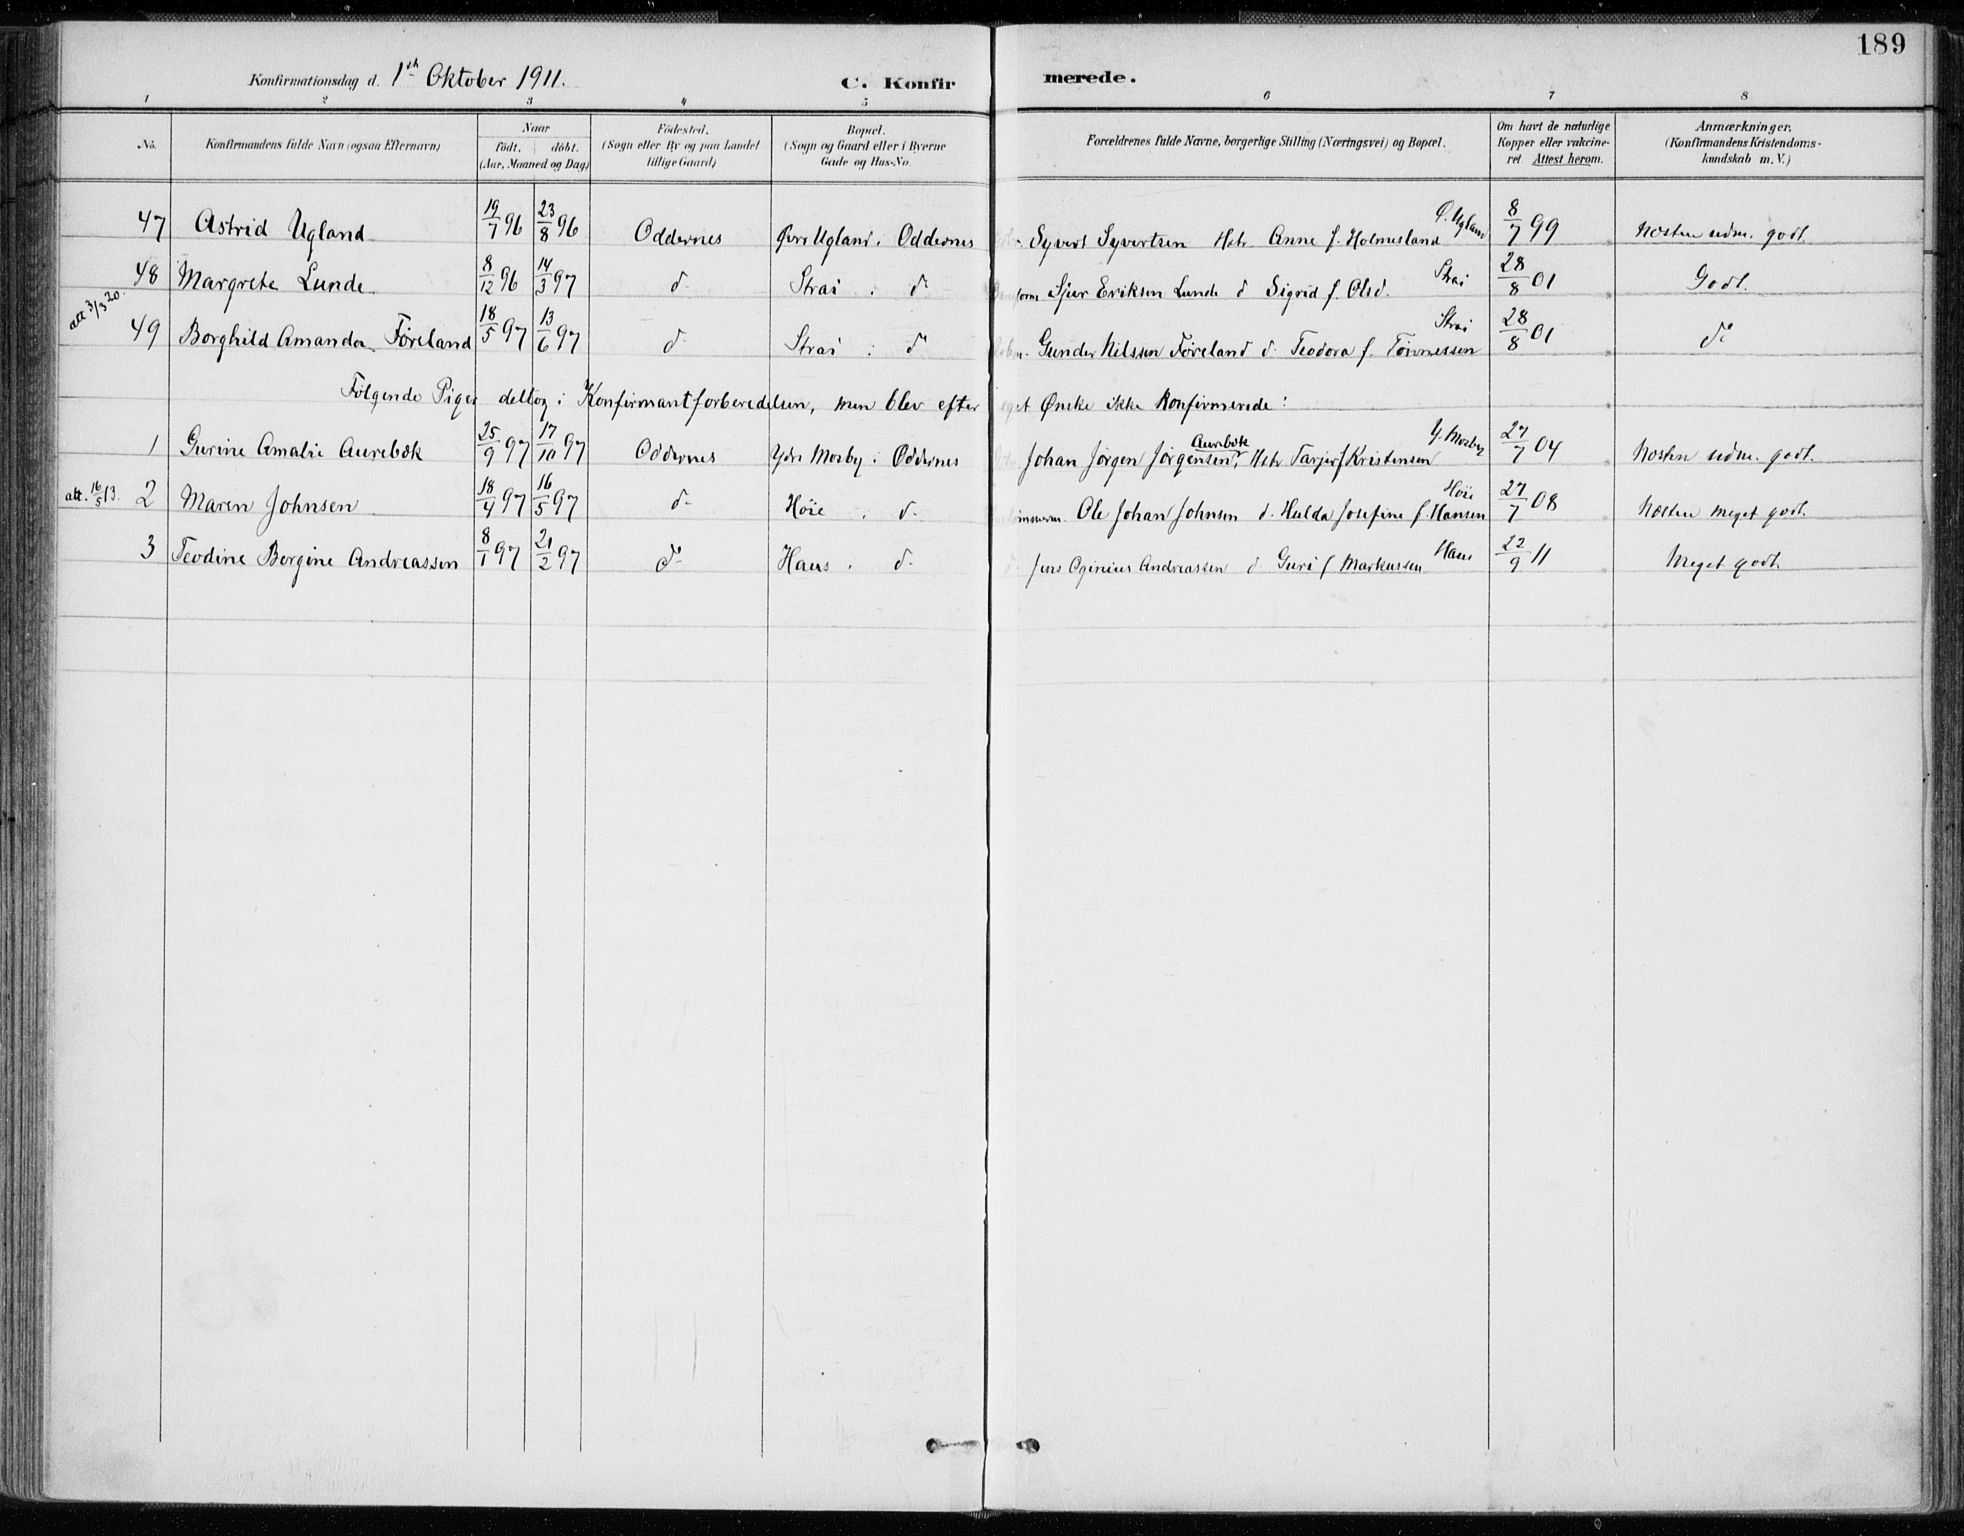 189
Konfirmationsdag d. 1ste Oktober 1911. C. Konfirmerede.
1 2 3 4 5 6 7 8
No. Konfirmandens fulde Navn (ogsaa Efternavn) Naar födt. döbt. (Aar, Maaned og Dag) Födested. (Sogn eller By og paa Landet tillige Gaard) Bopæl. (Sogn og Gaard eller i Byerne Gade og Hus-No. Forældrenes fulde Navne, borgerlige Stilling (Næringsvei) og Bopæl. Om havt de naturlige Kopper eller vakcineret. Attest herom. Anmærkninger. (Konfirmandens Kristendomskundskab m. V.)
47 Astrid Ugland 19/7 96 23/8 96 Oddernes Øvre Ugland i Oddernes Syvert Syvertsen Hstr Anne f. Holmesland Ø. Ugland 8/7 99 Næsten udm. godt
48 Margrete Lunde 8/12 96 14/3 97 do Strai i do Sjur Eriksen Lunde do Sigrid f. Olsd. Strai 28/8 01 Godt.
att 3/3 20. 49 Borghild Amanda Føreland 18/5 97 13/6 97 do Strai i do Gunder Nilssen Føreland do Teodora f. Tønnessen Strai 28/8 01 do
Følgende Piger deltog i Konfirmantforberedelsen, men blev efter eget Ønske ikke konfirmerede:
1 Gurine Amalie Aurebæk 25/9 97 17/10 97 Oddernes Ydre Mosby i Oddernes Johan Jørgen Jørgensen Aurebæk, Hstr Tarjer f Kristensen Y. Mosby 27/7 04 Næsten udm. godt.
att. 16/5 13. 2 Maren Johnsen 18/4 97 16/5 97 do Høie i do Ole Johan Johnsen do Hulda Josefine f. Hansen Høie 27/7 08 Næsten meget godt.
3 Teodine Bergine Andreassen 8/1 97 21/2 97 do Haus i do Jens Oginius Andreassen do Guri f Markussen Haus 22/9 11 Meget godt.